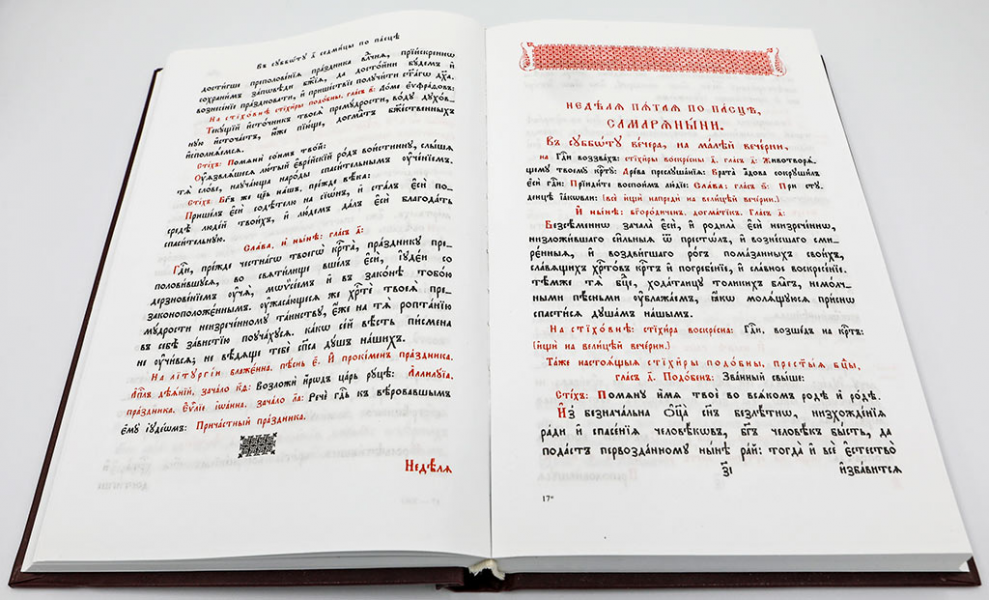 Въ сꙋббѡ́тꙋ д҃ седми́цы по па́сцѣ
дости́гше преполове́нїѧ пра́здника влⷣчнѧ, прїи́скреннѡ
сохрани́мъ за́пѡвѣди бж҃їѧ, да досто́йни бꙋ́демъ и҆
вознесе́нїе пра́здновати, и҆ прише́ствїе полꙋчи́ти ст҃а́гѡ дх҃а.
На стїхо́внѣ стїхи̑ры подѡ́бны, гла́съ в҃: До́ме є҆ѵфра́довъ:
Текꙋ́щїй и҆сто́чникъ твоеѧ̀ премꙋ́дрости, во́дꙋ дꙋхо́в-
ною и҆сточа́етъ, ю҆́же пїю́ще, дога́матъ бж҃е́ственныхъ
и҆сполнѧ́емсѧ.
Сті́хъ: Помѧнѝ со́нмъ тво́й:
Оу҆ѧзвлѧ́шесѧ лю́тый є҆вре́йскїй ро́дъ вои́стиннꙋ, слы́ша
тѧ̀ сло́ве, наꙋча́юща наро́ды спаси́тельнымъ ᲂу҆че́нїємъ.
Сті́хъ: Бг҃ъ же цр҃ь на́шъ, пре́жде вѣ́ка:
Прише́лъ є҆сѝ содѣ́телю на сїѡ́нъ, и҆ ста́лъ є҆сѝ по-
средѣ̀ люде́й твои́хъ, и҆ лю́демъ да́лъ є҆сѝ благода́ть
спаси́тельнꙋю.
Сла́ва, и҆ ны́нѣ: гла́съ д҃:
Гдⷭ҇и, пре́жде честна́гѡ твоегѡ̀ крⷭ҇та̀, пра́здникꙋ пре-
полови́вшꙋсѧ, во ст҃и́лище вше́лъ є҆сѝ, і҆ꙋде́и со
дерзнове́нїемъ ᲂу҆чѧ̀, мѡѷсе́ѡмъ и҆ въ зако́нѣ тобо́ю
законоположе́ннымъ. ᲂу҆жаса́ющесѧ же хрⷭ҇тѐ твоеѧ̀ пре-
мꙋ́дрости неизрече́нномꙋ та́инствꙋ, є҆́же на тѧ̀ ропта́нїю
въ себѣ̀ за́вистїю поꙋча́хꙋсѧ. ка́кѡ се́й вѣ́сть писмена̀
не ᲂу҆чи́всѧ; не вѣ́дѧще тебѐ сп҃са дꙋ́шъ на́шихъ.
На лїтꙋргі́и блаже́нна. пѣ́снь є҃. И҆ прокі́менъ пра́здника.
А҆пⷭ҇лъ дѣѧ́ній, зача́ло к҃д: Возложѝ и҆́рѡдъ ца́рь рꙋ́цѣ: А҆ллилꙋ́їа,
пра́здника. Є҆ѵⷢ҇лїе і҆ѡа́нна, зача́ло л҃а: Речѐ гдⷭ҇ь къ вѣ́ровавшымъ
є҆мꙋ̀ і҆ꙋде́ѡмъ: Прича́стный пра́здника.
Недѣ́лѧ
НЕДѢ́ЛѦ ПѦ́ТАѦ ПО ПА́СЦѢ,
САМАРѦНЫ́НИ.
Въ сꙋббѡ́тꙋ ве́чера, на ма́лѣй вече́рни,
на Гдⷭ҇и воззва́хъ: стїхи̑ры воскрⷭ҇ны д҃. гла́съ д҃: Животворѧ́-
щемꙋ твоемꙋ̀ крⷭ҇тꙋ̀: Дре́ва преслꙋша́нїѧ: Врата̀ а҆́дѡва сокрꙋши́лъ
є҆сѝ гдⷭ҇и: Прїиди́те воспои́мъ лю́дїе: Сла́ва: гла́съ ѕ҃: При стꙋ-
денцѣ̀ і҆а́кѡвли: (всѐ и҆щѝ напредѝ на вели́цѣй вече́рни.)
И҆ ны́нѣ: бг҃оро́диченъ, догма́тикъ. Гла́съ д҃:
Безсѣ́меннѡ зачала̀ є҆сѝ, и҆ родила̀ є҆сѝ неизрече́ннѡ,
низложи́вшаго си́льныѧ ѿ престѡ́лъ, и҆ возне́сшаго сми-
рє́нныѧ, и҆ воздви́гшаго ро́гъ пома́занныхъ свои́хъ,
сла́вѧщихъ хрⷭ҇то́въ крⷭ҇тъ и҆ погребе́нїе, и҆ сла́вное воскресе́нїе.
тѣ́мже тѧ̀ бцⷣе, хода́таицꙋ толи́кихъ бла̑гъ, немо́лч-
ными пѣ́сньми ᲂу҆блажа́емъ, ꙗ҆́кѡ молѧ́щꙋюсѧ при́снѡ
спасти́сѧ дꙋша́мъ на́шымъ.
На стїхо́внѣ: стїхи́ра воскре́сна: Гдⷭ҇и, возше́дъ на крⷭ҇тъ:
(и҆щѝ на вели́цѣй вече́рни.)
Та́же настоѧ́щыѧ стїхи̑ры подѡ́бны, прест҃ы́ѧ бцⷣы,
гла́съ д҃. Подо́бенъ: Зва́нный свы́ше:
Сті́хъ: Помѧнꙋ̀ и҆́мѧ твоѐ во всѧ́комъ ро́дѣ и҆ ро́дѣ.
И҆з̾ безнача́льна ѻ҆ц҃а̀ сн҃ъ безлѣ́тнѡ, низхожде́нїѧ
ра́ди и҆ спасе́нїѧ человѣ́кѡвъ, бг҃ъ человѣ́къ бы́сть, да
пода́стъ первозда́нномꙋ ны́нѣ ра́й: тогда̀ и҆ всѐ є҆стество̀
и҆зба́витсѧ
17*